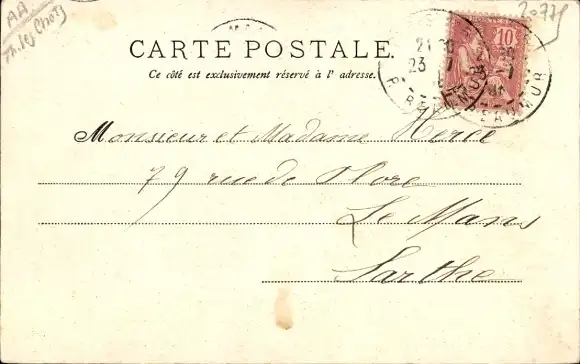 AA
20775
CARTE POSTALE.
Ce côté est exclusivement réservé à l' adresse.
10
21 30
23
R. REAUMUR
Monsieur et Madame Herce
79 rue de Flore
Le Mans
Sarthe